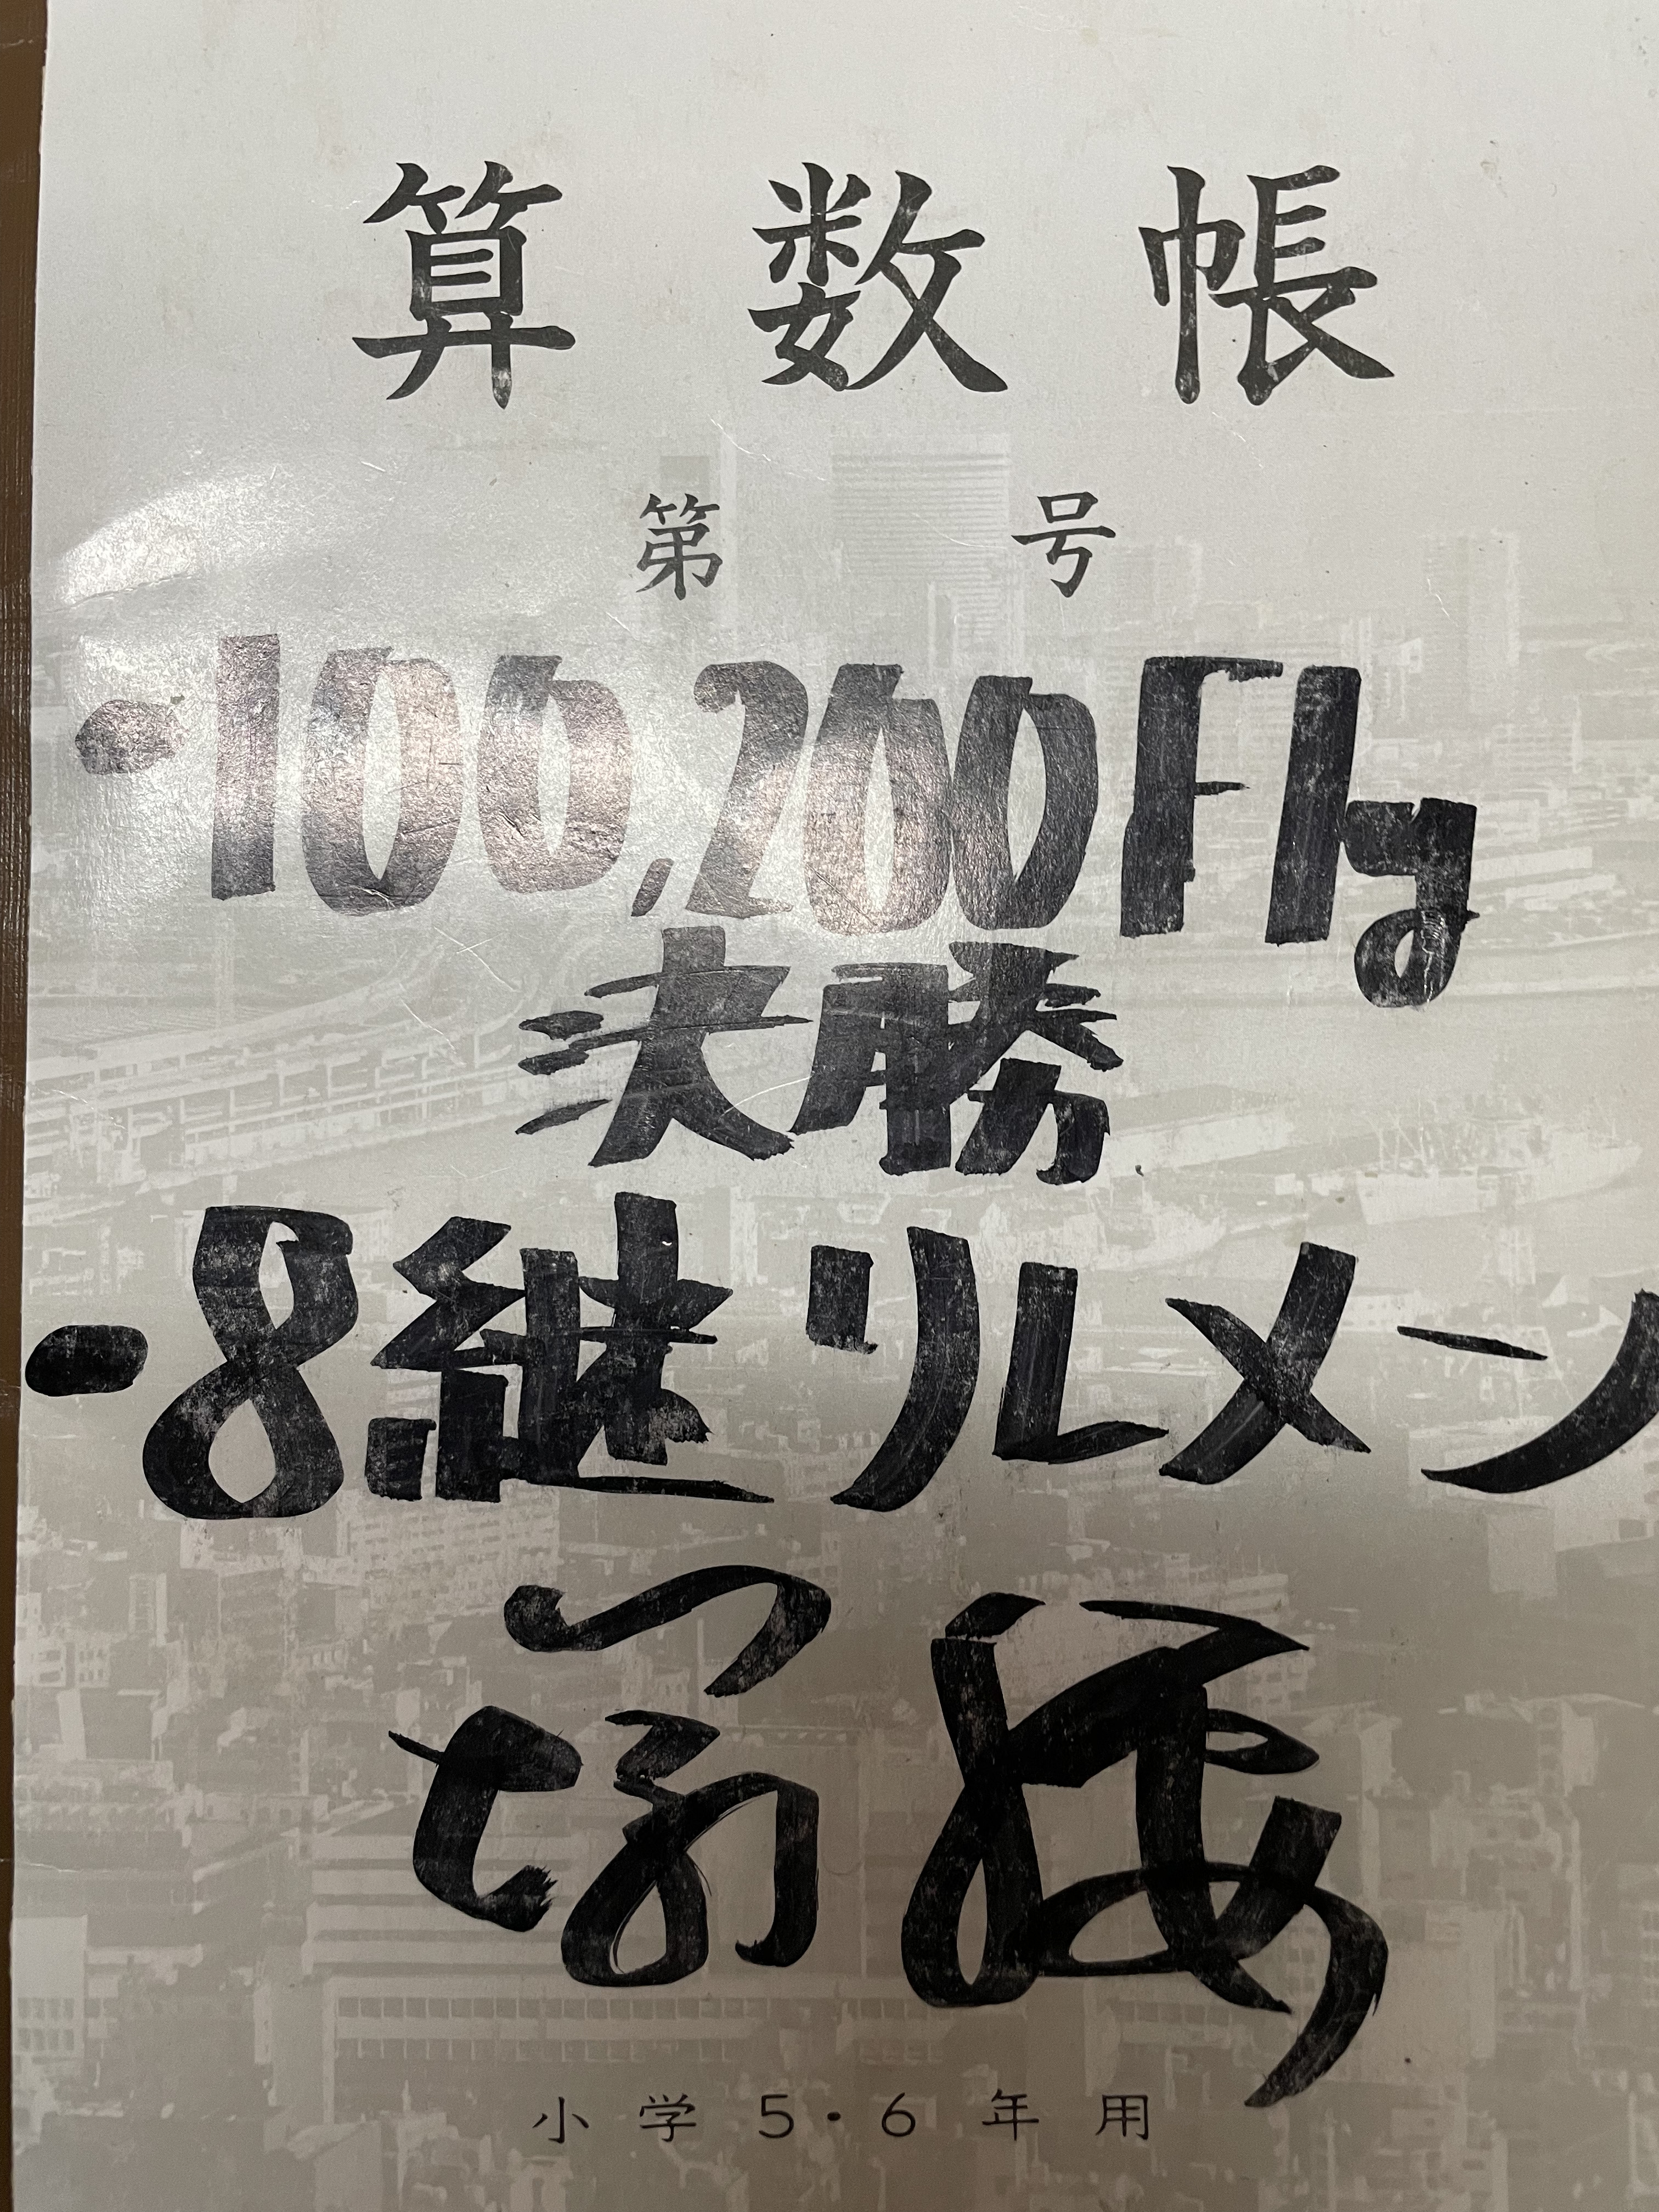 算数帳
第 号
・100,200Fly
決勝
・8継リルメン
小学5・6年用